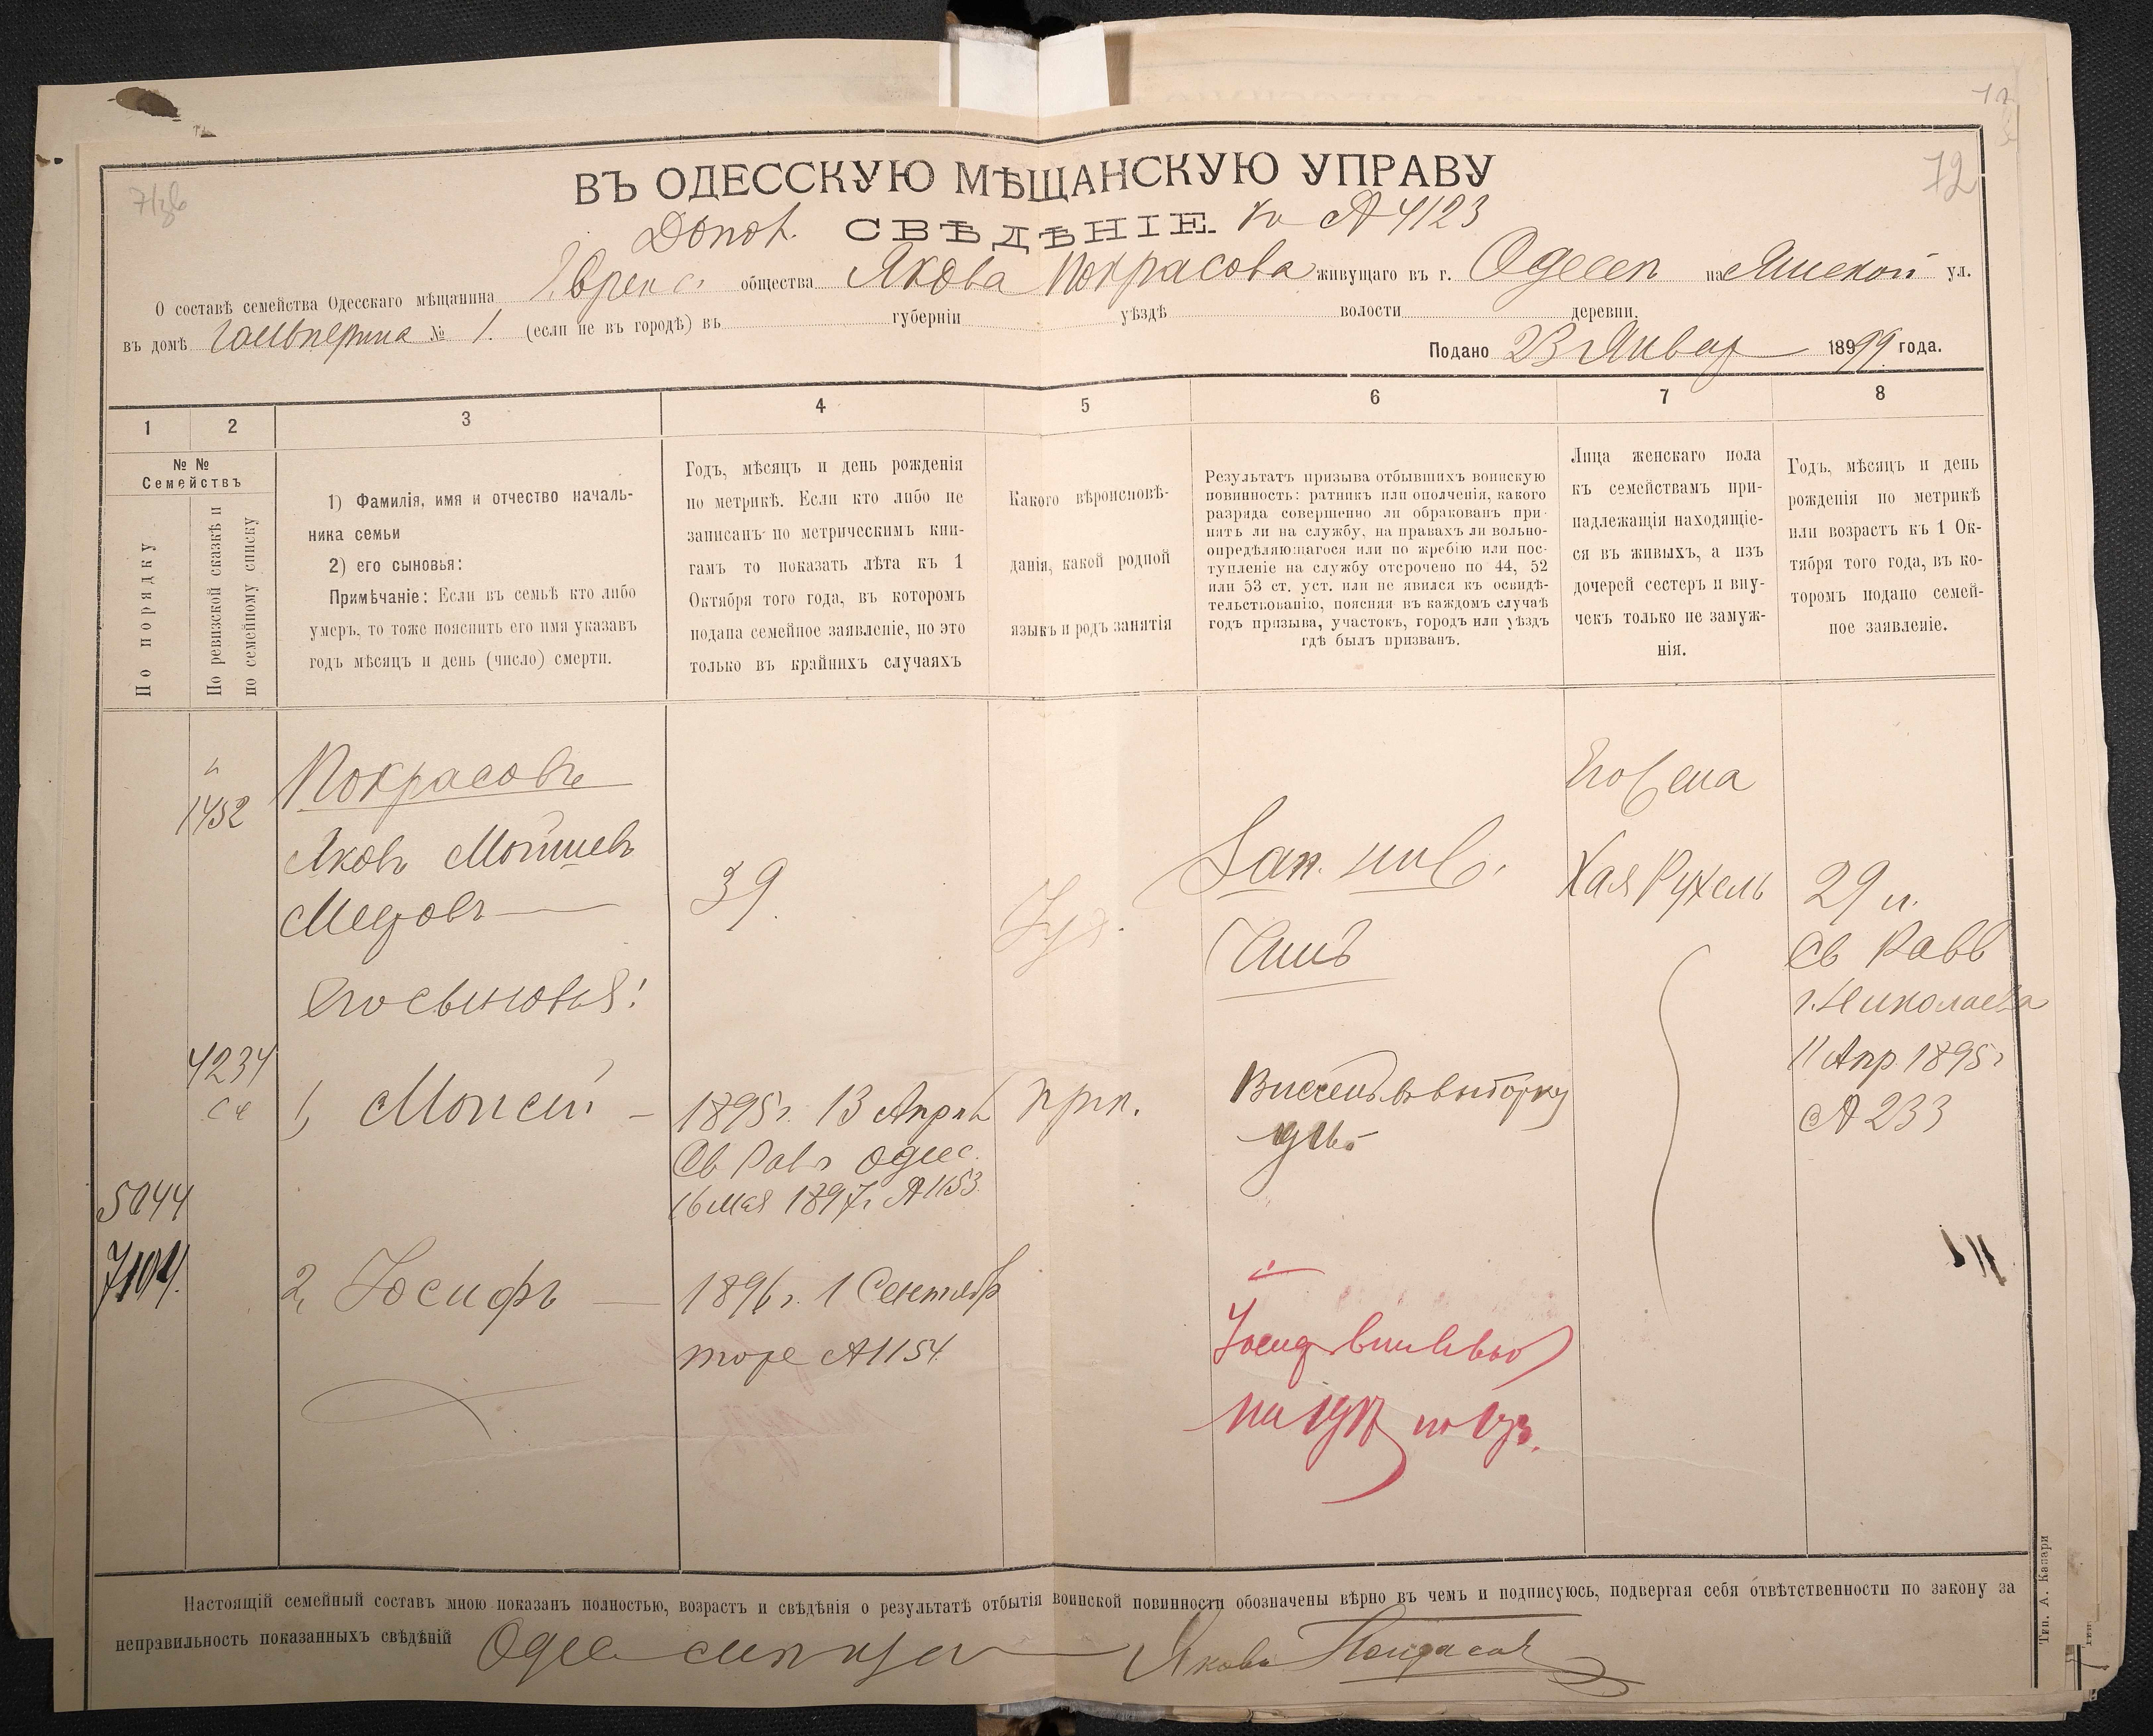 72
ВЪ ОДЕССКУЮ МѢЩАНСКУЮ УПРАВУ
СВѢДѢНІЕ. 4123
О составѣ семейства Одесскаго мѣщанина общества Якова Покрасова живущаго въ г. Одессѣ на Ямской ул.
въ домѣ Гальперина № 1. (если не въ городѣ) въ губерніи уѣздѣ волости деревни.
Подано 23 Январ 1899 года.
1 2 3 4 5 6 7 8
№ №
Семействъ
По порядку
По ревизской сказкѣ и
по семейному списку
1) Фамилія, имя и отчество началь-
ника семьи
2) его сыновья:
Примѣчаніе: Если въ семьѣ кто либо
умеръ, то тоже пояснить его имя указавъ
годъ мѣсяцъ и день (число) смерти.
Годъ, мѣсяцъ и день рожденія
по метрикѣ. Если кто либо не
записанъ по метрическимъ кни-
гамъ то показать лѣта къ 1
Октября того года, въ которомъ
подана семейное заявленіе, но это
только въ крайнихъ случаяхъ
Какого вѣроисповѣ-
данія, какой родной
языкъ и родъ занятія
Результатъ призыва отбывшихъ воинскую
повинность: ратникъ или ополченія, какого
разряда совершенно ли обракованъ при-
нятъ ли на службу, на правахъ ли вольно-
опредѣляющагося или по жребію или пос-
тупленіе на службу отсрочено по 44, 52
или 53 ст. уст. или не явился къ освидѣ-
тельствованію, поясняя въ каждомъ случаѣ
годъ призыва, участокъ, городъ или уѣздъ
гдѣ былъ призванъ.
Лица женскаго пола
къ семействамъ при-
надлежащія находящіе-
ся въ живыхъ, а изъ
дочерей сестеръ и вну-
чекъ только не замуж-
нія.
Годъ, мѣсяцъ и день
рожденія по метрикѣ
или возрастъ къ 1 Ок-
тября того года, въ ко-
торомъ подано семей-
ное заявленіе.
1452
Покрасовъ
Яковъ Мойшев
39.
Зап.
Его жена
Хая Рухель
29 л.
Св Равв
г. Николаева
11 Апр 1895 г
№ 233
Его сыновья:
4234
1, Моисей — 1895 г. 13 Апрѣл
Св Рав г Одес.
16 мая 1897 г № 1153.
5044
7104.
2, Іосифъ — 1896 г. 1 Сентябр
тоже № 1154
на 1917
Настоящій семейный составъ мною показанъ полностью, возрастъ и свѣдѣнія о результатѣ отбытія воинской повинности обозначены вѣрно въ чемъ и подписуюсь, подвергая себя отвѣтственности по закону за
неправильность показанныхъ свѣдѣній Яковъ Покрасов
Тип. А. Казари